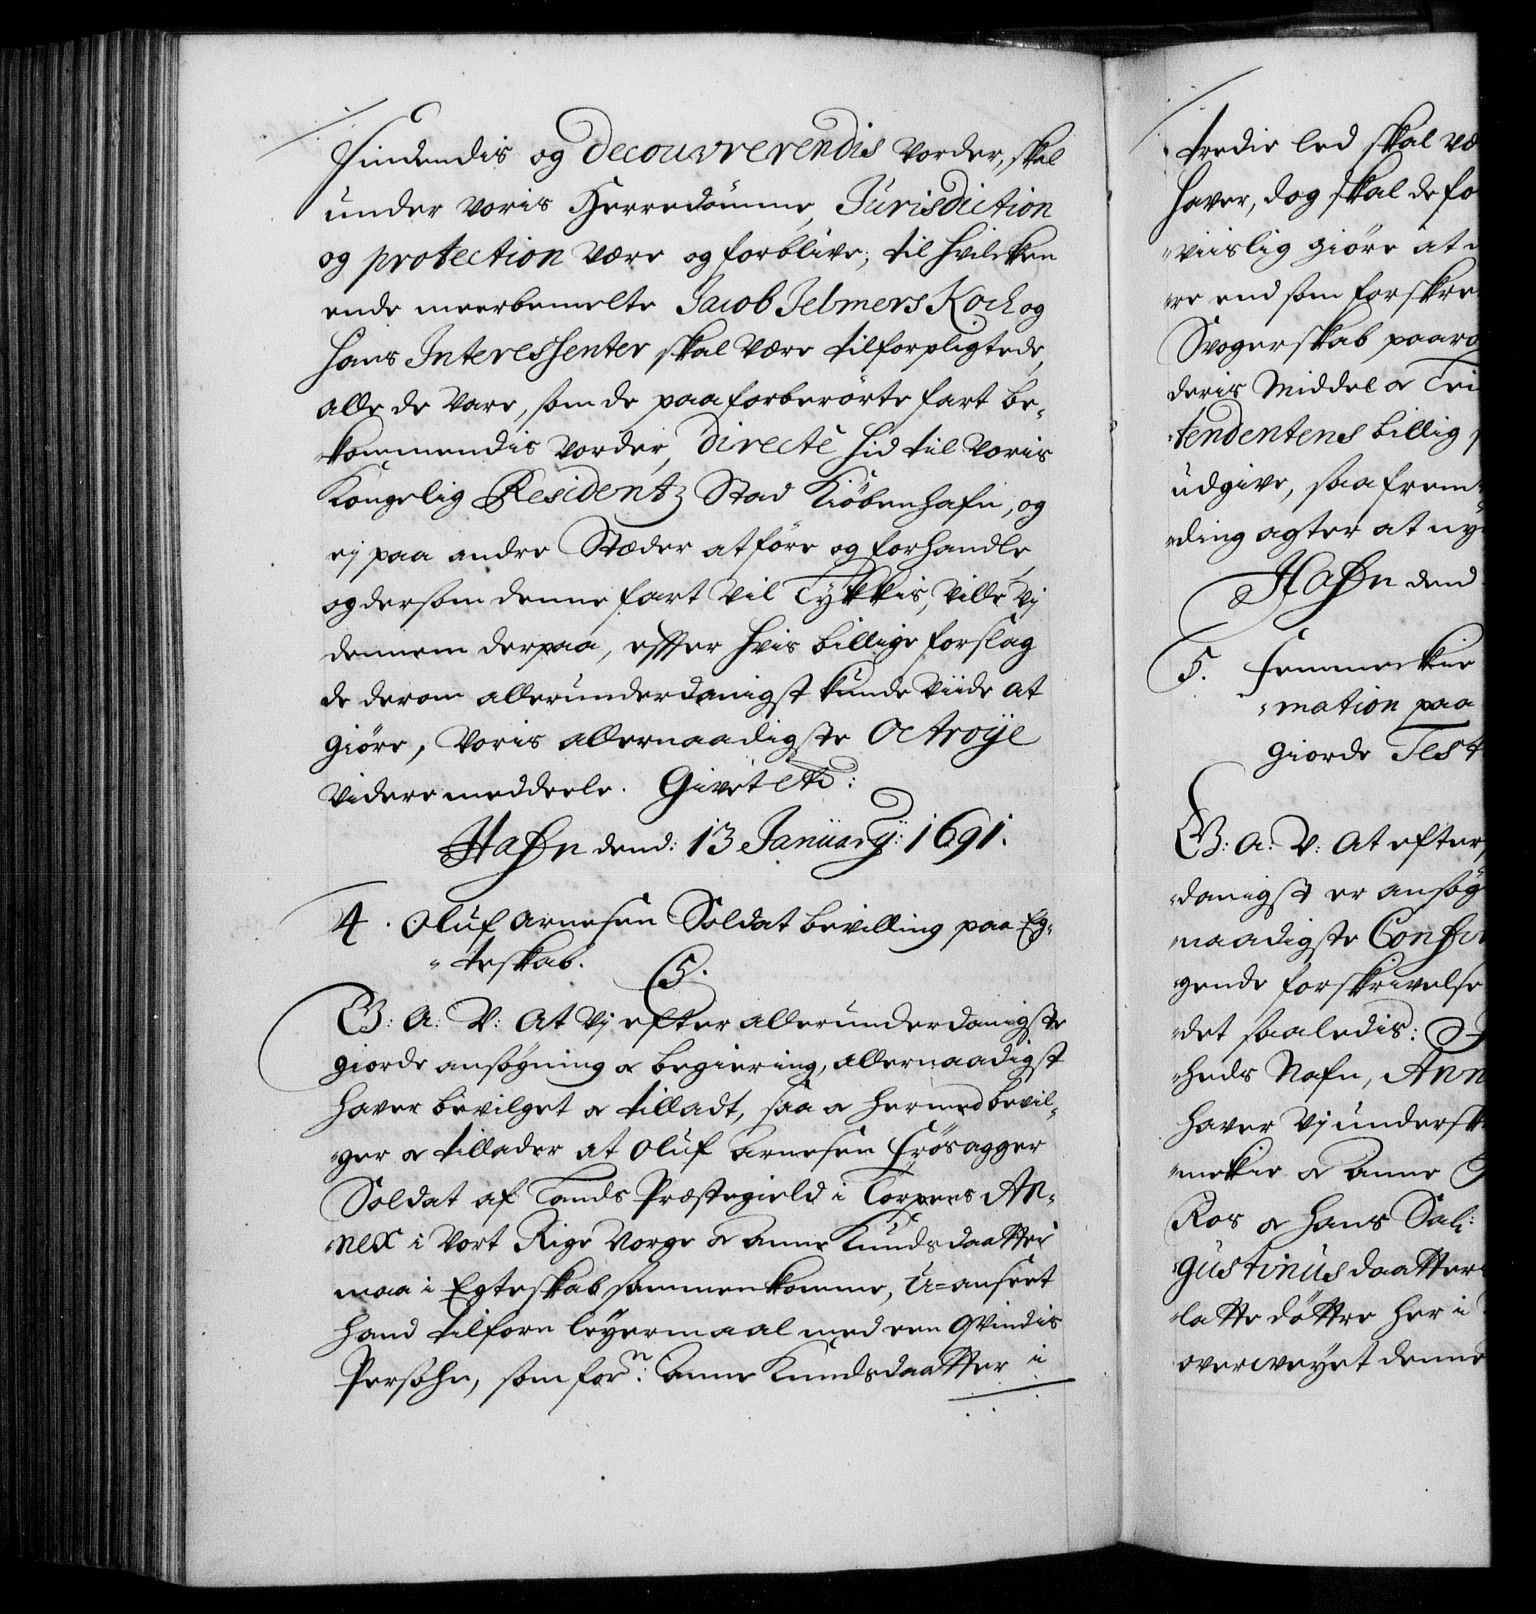 findendis og decouvrerendis vorder, skal
under voris Herredømme, Jurisdiction
og protection være og forblive; til hvilcken
ende meerbemelte Jacob Jelmers Koch og
hans Interessenter skal være tilforpligtede,
alle de Vare, som de paa forberørte fart be-
kommendis vorder, directè hid til voris
Kongelig Residentz Stad Kiöbenhafn, og
ej paa andre Stæder at føre og forhandle,
og dersom denne fart vil Lykkis, ville Vj
dennem derpaa, effter hvis billige forslag
de derom allerunderdanigst kunde viide at
giøre, voris allernaadigste Octroije
videre meddeele. Givet etc:
Hafn dend: 13 January: 1691.
4. Oluf Arnesen Soldat bevilling paa Eg-
teskab.
C5.
G: A: V: At Vj efter allerunderdanigste
giorde ansøgning & begiering, allernaadigst
haver bevilget & tilladt, saa & hermed bevil-
ger & tillader at Oluf Arnesen Frösagger
Soldat af Lands Præstegield i Torpens An-
nex i vort Rige Norge & Anne Knudsdaatter
maa i Egteskab sammenkomme, U-anseet
hand tilforn leyermaal med een Qvindis
Persohn, som forn: Anne Knudsdaatter i
tredie led skal væ
haver, dog skal de fo
viislig giøre at
re end som forskre
Svogerskab paarø
deris Middel &
tendentens billig
udgive, saafrem
ding agter at ny
Hafn dend
5. Femmeckie
mation paa
giorde Test
G: A: V: At efter
danigst er ansøg
naadigste Confir
gende forskrivelse
det saaledis:
heds Nafn, Ann
haver Vj undersk
meckie & Anne
Ros & hans Sal:
gustinus daatter
latte døttre her i
overweyet denne